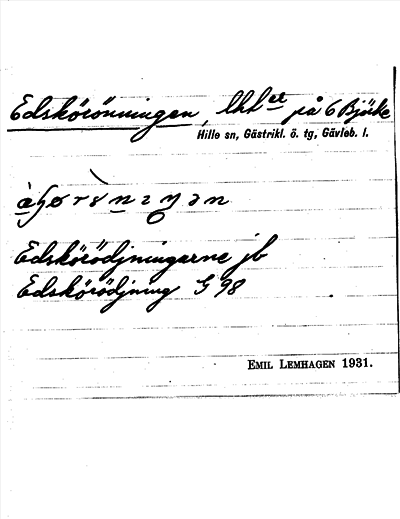 Edskörönningen, lht er på 6 Björke
Hille sn, Gästrikl. ö. tg, Gävleb. l.
Edskörödjningarne jb
Edskörödjning G 98
EMIL LEMHAGEN 1931.